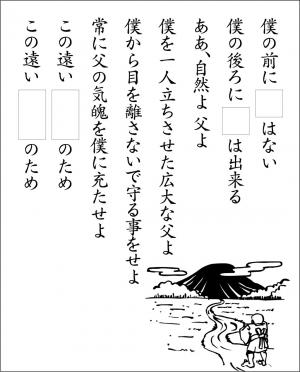 僕の前に□はない
僕の後ろに□は出来る
ああ、自然よ父よ
僕を一人立ちさせた広大な父よ
僕から目を離さないで守る事をせよ
常に父の気魄を僕に充たせよ
この遠い□のため
この遠い□のため